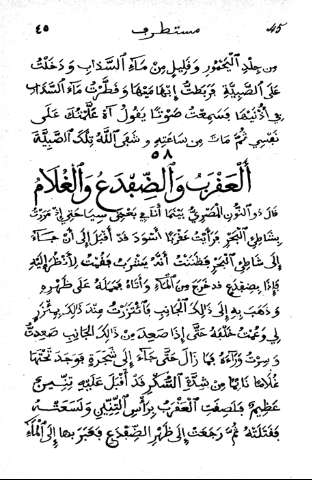 45 مستطرف ٤٥
مِن جِلْدِ ٱلْيَحْمُورِ وَقَلِيلٍ مِن مَاءِ ٱلسَّدَابِ وَدَخَلْتُ
عَلَى ٱلصَّبِيَّةِ فَرَبَطْتُ إِبْهَامَيْهَا وَقَطَّرْتُ مَاءَ ٱلسَّدَابِ
فِي أُذْنَيْهَا فَسَمِعْتُ صَوْتًا يَقُولُ آهْ عَلَّمْتُكَ عَلَى
نَفْسِي ثُمَّ مَاتَ مِن سَاعَتِهِ وَشَفَى ٱللَّهُ تِلْكَ ٱلصَّبِيَّةَ
٥٨
ٱلْعَقْرَبُ وَٱلضِّفْدَعُ وَٱلْغُلَامُ
قَالَ ذُو ٱلنُّونِ ٱلْمِصْرِيُّ بَيْنَمَا أَنَا فِي بَعْضِ سِيَاحَتِي إِذْ مَرَرْتُ
بِشَاطِئِ ٱلْبَحْرِ فَرَأَيْتُ عَقْرَبًا أَسْوَدَ قَدْ أَقْبَلَ إِلَى أَنْ جَاءَ
إِلَى شَاطِئِ ٱلْبَحْرِ فَظَنَنْتُ أَنَّهُ يَشْرَبُ فَقُمْتُ لِأَنْظُرَ إِلَيْهِ
فَإِذَا بِضِفْدَعٍ قَدْ خَرَجَ مِنَ ٱلْمَاءِ وَأَتَاهُ فَحَمَلَهُ عَلَى ظَهْرِهِ
وَذَهَبَ بِهِ إِلَى ذَٰلِكَ ٱلْجَانِبِ فَٱتَّزَرْتُ عِنْدَ ذَٰلِكَ بِمِئْزَرٍ
لِي وَعُمْتُ خَلْفَهُ حَتَّى إِذَا صَعِدَ مِنْ ذَٰلِكَ ٱلْجَانِبِ صَعِدْتُ
وَسِرْتُ وَرَاءَهُ فَمَا زَالَ حَتَّى جَاءَ إِلَى شَجَرَةٍ فَوَجَدَ تَحْتَهَا
غُلَامًا نَائِمًا مِنْ شِدَّةِ ٱلسُّكْرِ قَدْ أَقْبَلَ عَلَيْهِ تِنِّينٌ
عَظِيمٌ فَلَصِقَتِ ٱلْعَقْرَبُ بِرَأْسِ ٱلتِّنِّينِ وَلَسَعَتْهُ
فَقَتَلَتْهُ ثُمَّ رَجَعَتْ إِلَى ظَهْرِ ٱلضِّفْدَعِ فَعَبَرَ بِهَا إِلَى ٱلْمَاءِ